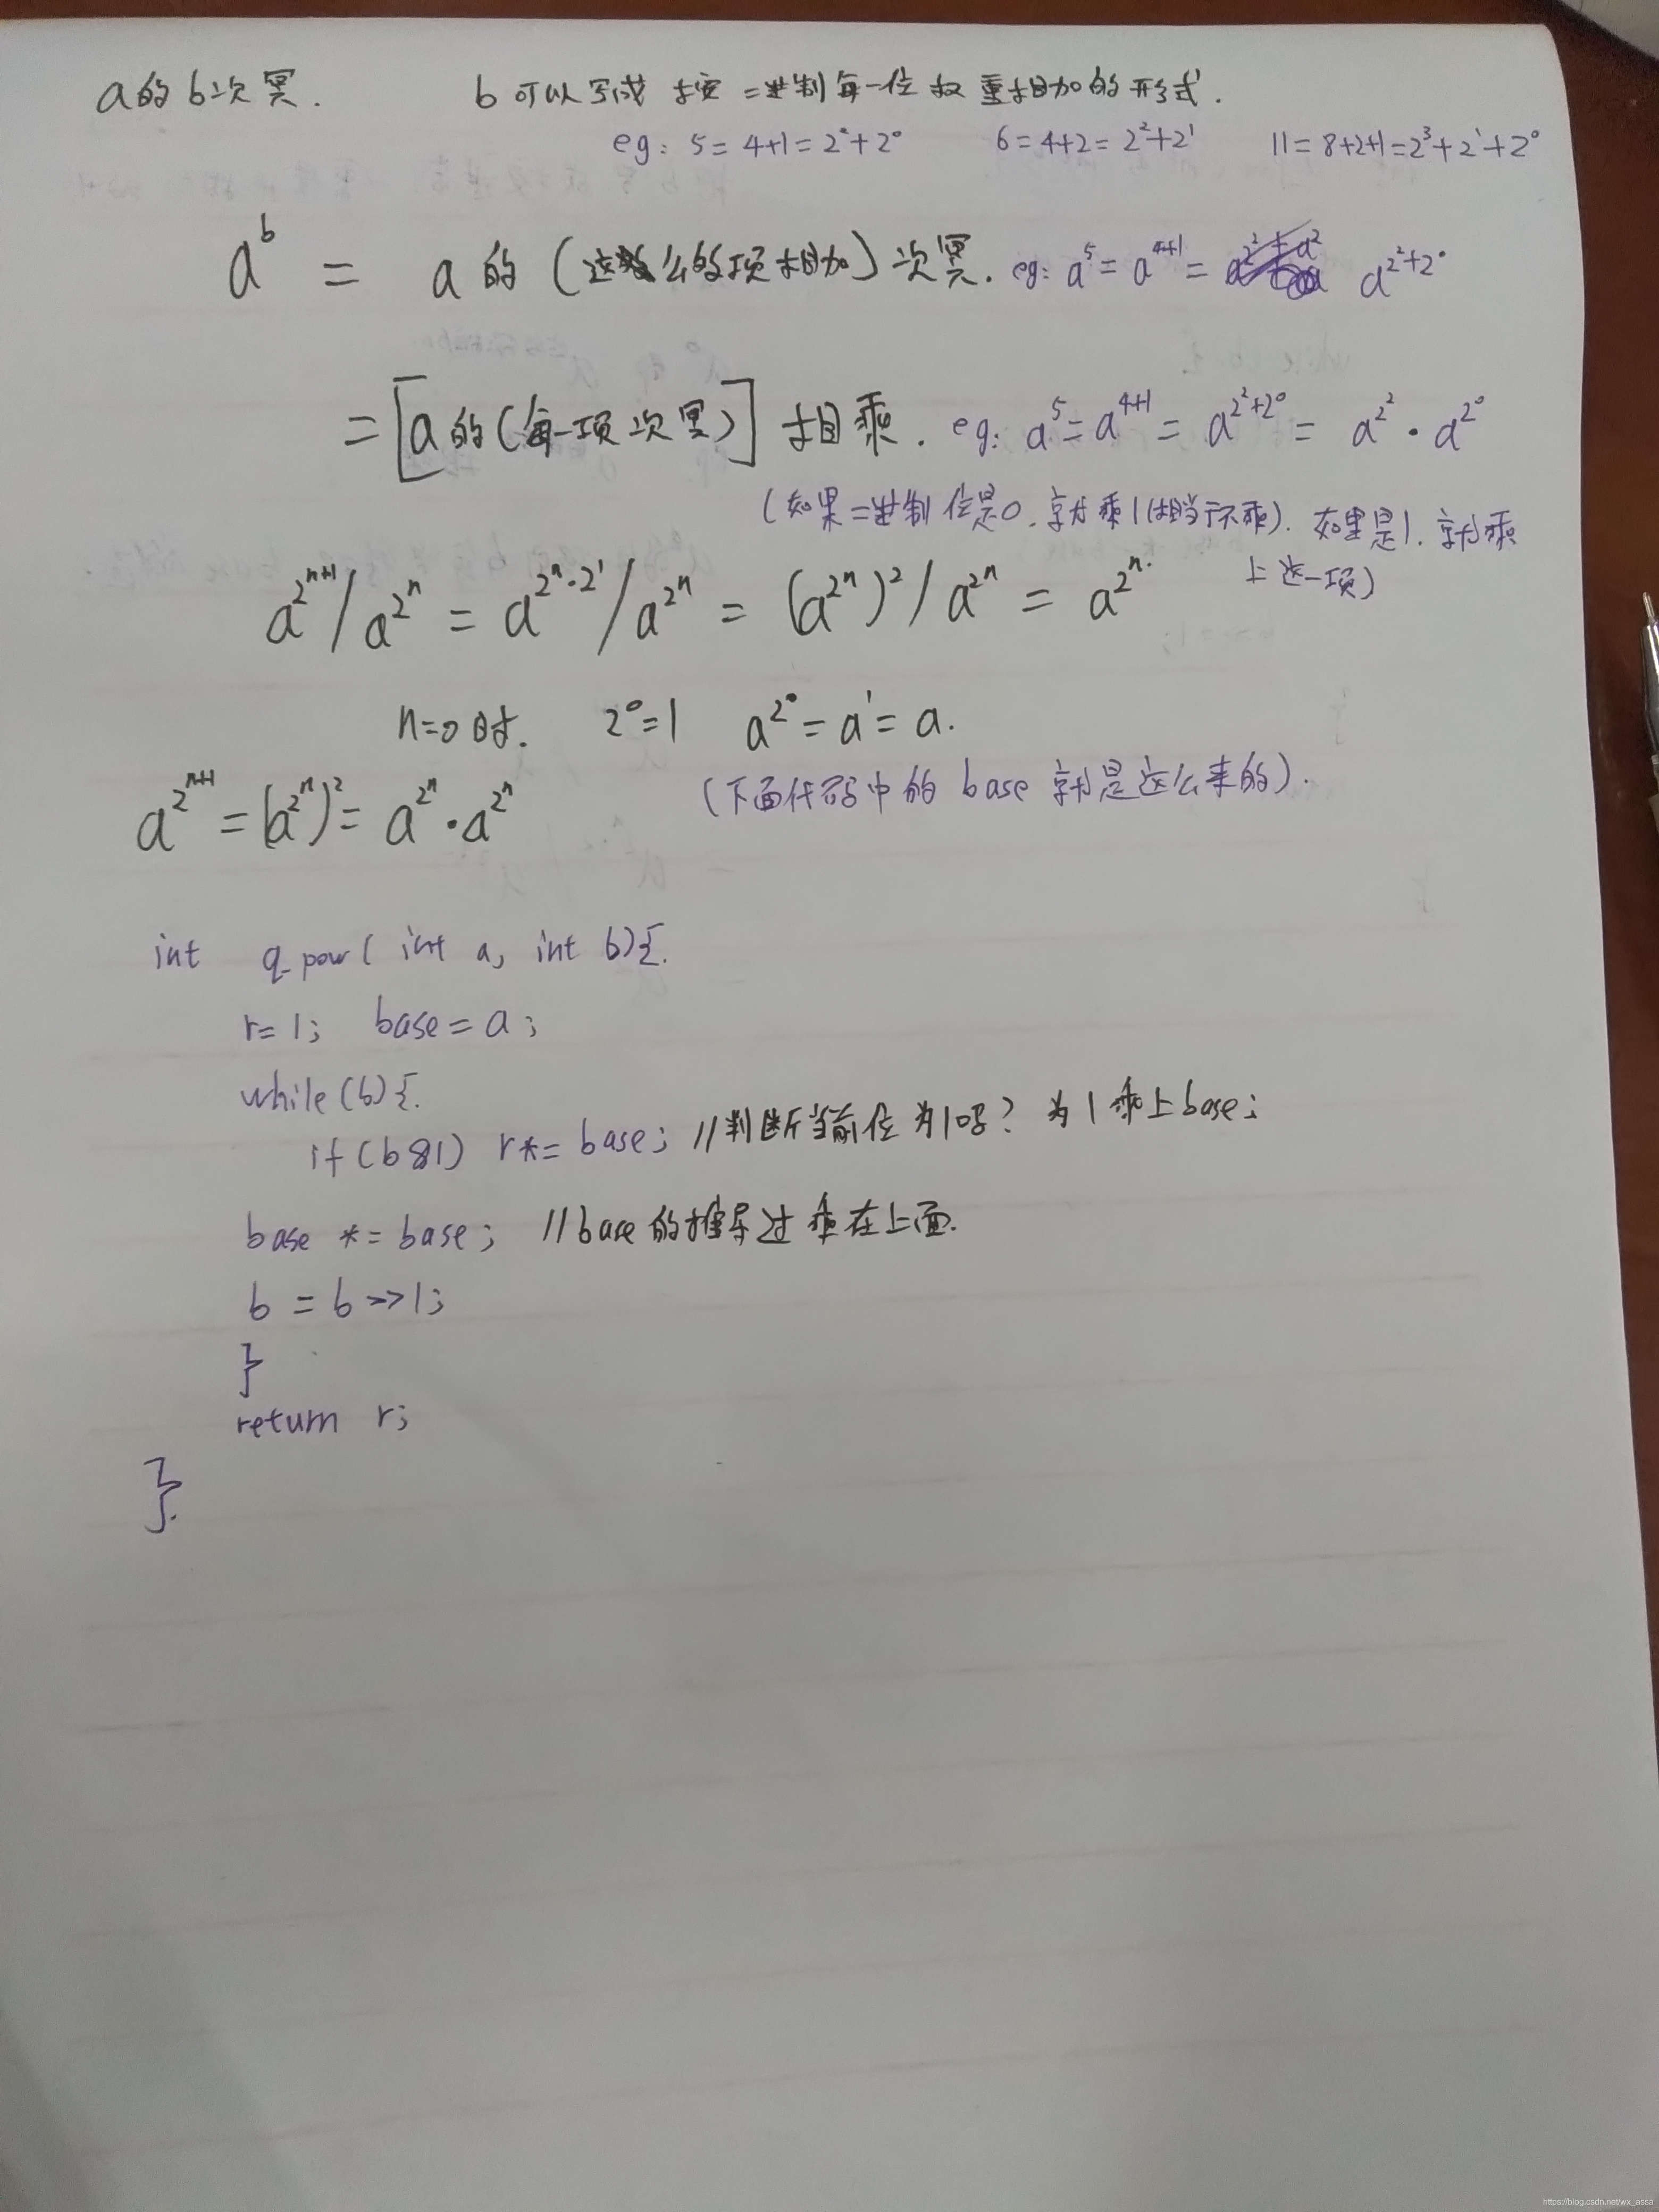 a的b次冥. b可以写成 按二进制每一位权重相加的形式.
eg: 5=4+1=2²+2⁰ 6=4+2=2²+2¹ 11=8+2+1=2³+2¹+2⁰
a^b = a的(这么的项相加)次冥. eg: a⁵=a^(4+1)= a^(2²+2⁰)
=[a的(每一项次冥)]相乘. eg: a⁵=a^(4+1)=a^(2²+2⁰)=a^(2²)·a^(2⁰)
(如果二进制位是0.就乘1(相当于不乘).如果是1.就乘
上这一项)
a^(2^(n+1))/a^(2^n)=a^(2^n·2¹)/a^(2^n)=(a^(2^n))²/a^(2^n)=a^(2^n).
n=0时. 2⁰=1 a^(2⁰)=a¹=a.
(下面代码中的base就是这么来的).
a^(2^(n+1))=(a^(2^n))²=a^(2^n)·a^(2^n)
int q_pow(int a, int b){.
r=1; base=a;
while(b){.
if(b&1) r*=base; //判断当前位为1吗? 为1乘上base;
base *= base; //base的推导过乘在上面.
b = b>>1;
}
return r;
}.
https://blog.csdn.net/wx_assa